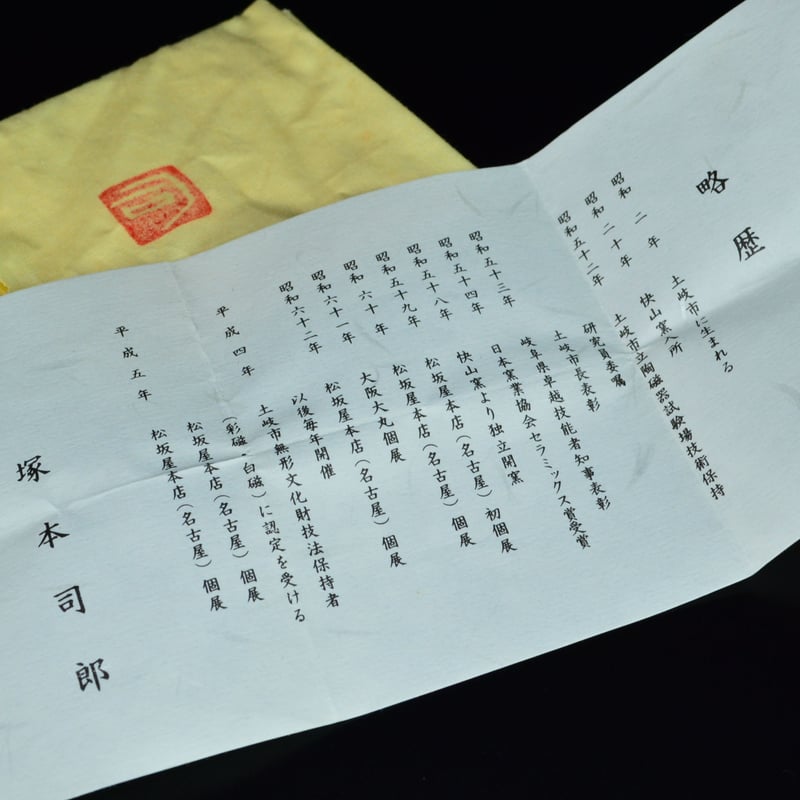 略歴
昭和 二年 土岐市に生まれる
昭和 二十年 快山窯入所
昭和五十二年 土岐市立陶磁器試験場技術保持
研究員委嘱
土岐市長表彰
昭和五十三年 岐阜県卓越技能者知事表彰
昭和五十四年 日本窯業協会セラミックス賞受賞
昭和五十八年 快山窯より独立開窯
昭和五十九年 松坂屋本店(名古屋)初個展
昭和 六十年 松坂屋本店(名古屋)個展
昭和六十一年 大阪大丸個展
昭和六十二年 松坂屋本店(名古屋)個展
以後毎年開催
平成四年 土岐市無形文化財技法保持者
(彩磁・白磁)に認定を受ける
松坂屋本店(名古屋)個展
平成五年 松坂屋本店(名古屋)個展
塚本司郎